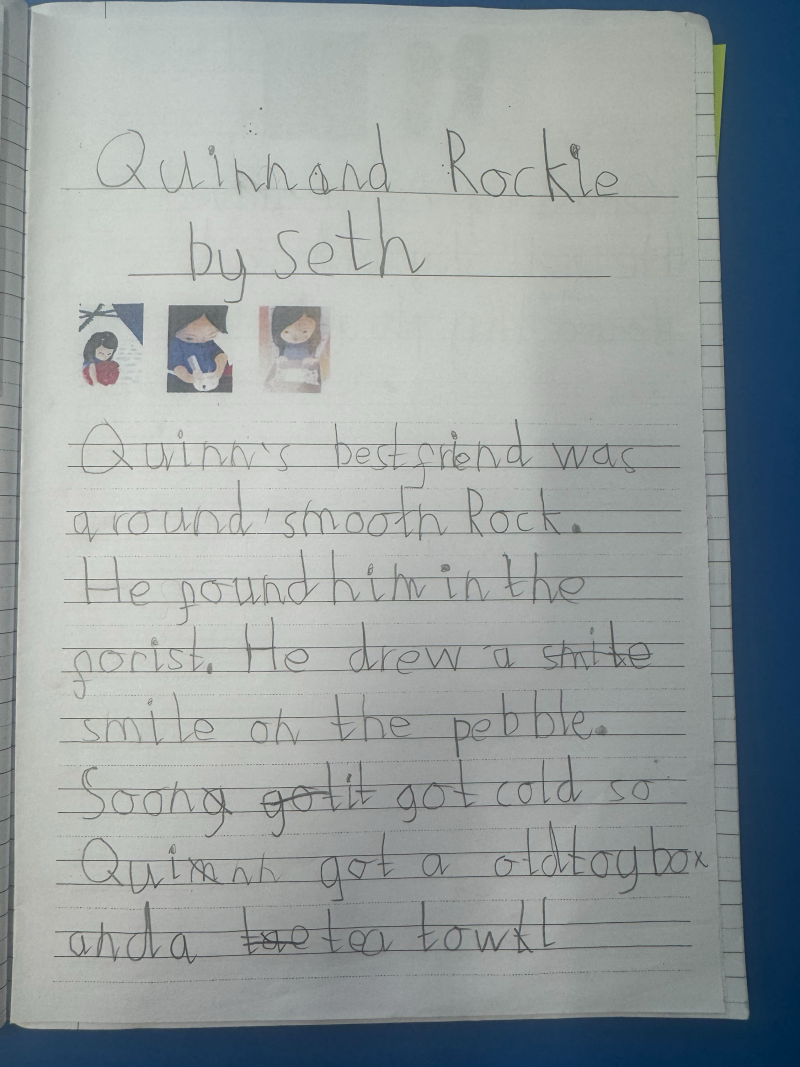 Quinn and Rockie
by Seth
Quinn's best friend was
a round smooth Rock.
He found him in the
forist. He drew a smile
smile on the pebble.
Soong got it got cold so
Quinnn got a old toy box
and a tae tea towel